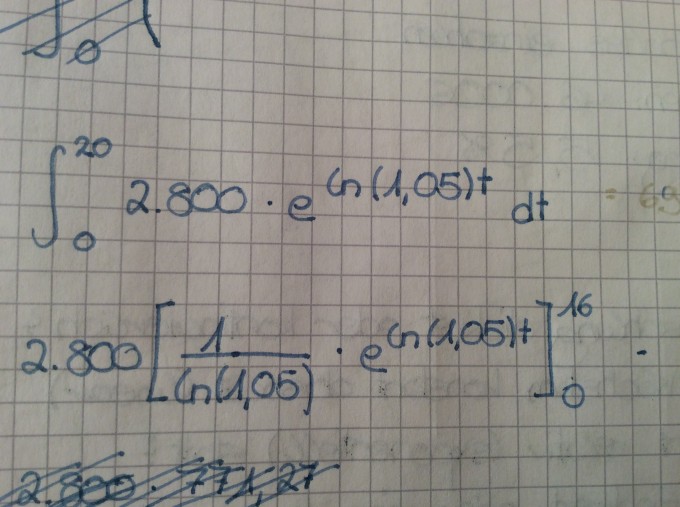 ∫₀²⁰ 2.800 · e^ln(1,05)t dt = 69
2.800 [ 1/ln(1,05) · e^ln(1,05)t ]₀¹⁶ -
2.800 · 771,27